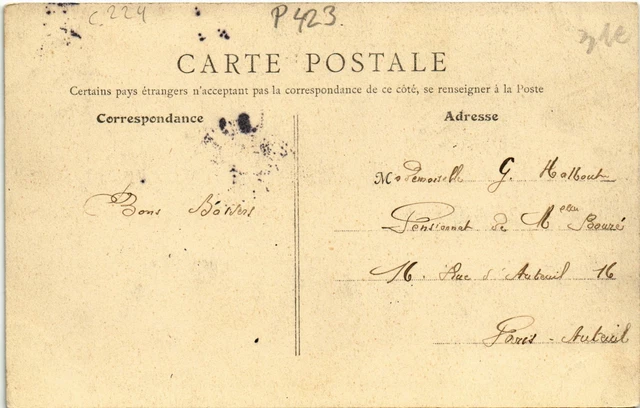 C. 224
P 423.
CARTE POSTALE
Certains pays étrangers n'acceptant pas la correspondance de ce côté, se renseigner à la Poste
Correspondance
Adresse
Bons Baisers
Mademoiselle G. Halbout
Pensionnat de Melle Bouré
16. Rue d'Auteuil 16
Paris - Auteuil